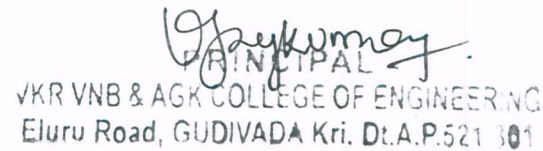 PRINCIPAL
VKR VNB & AGK COLLEGE OF ENGINEERING
Eluru Road, GUDIVADA Kri. Dt.A.P.521 301